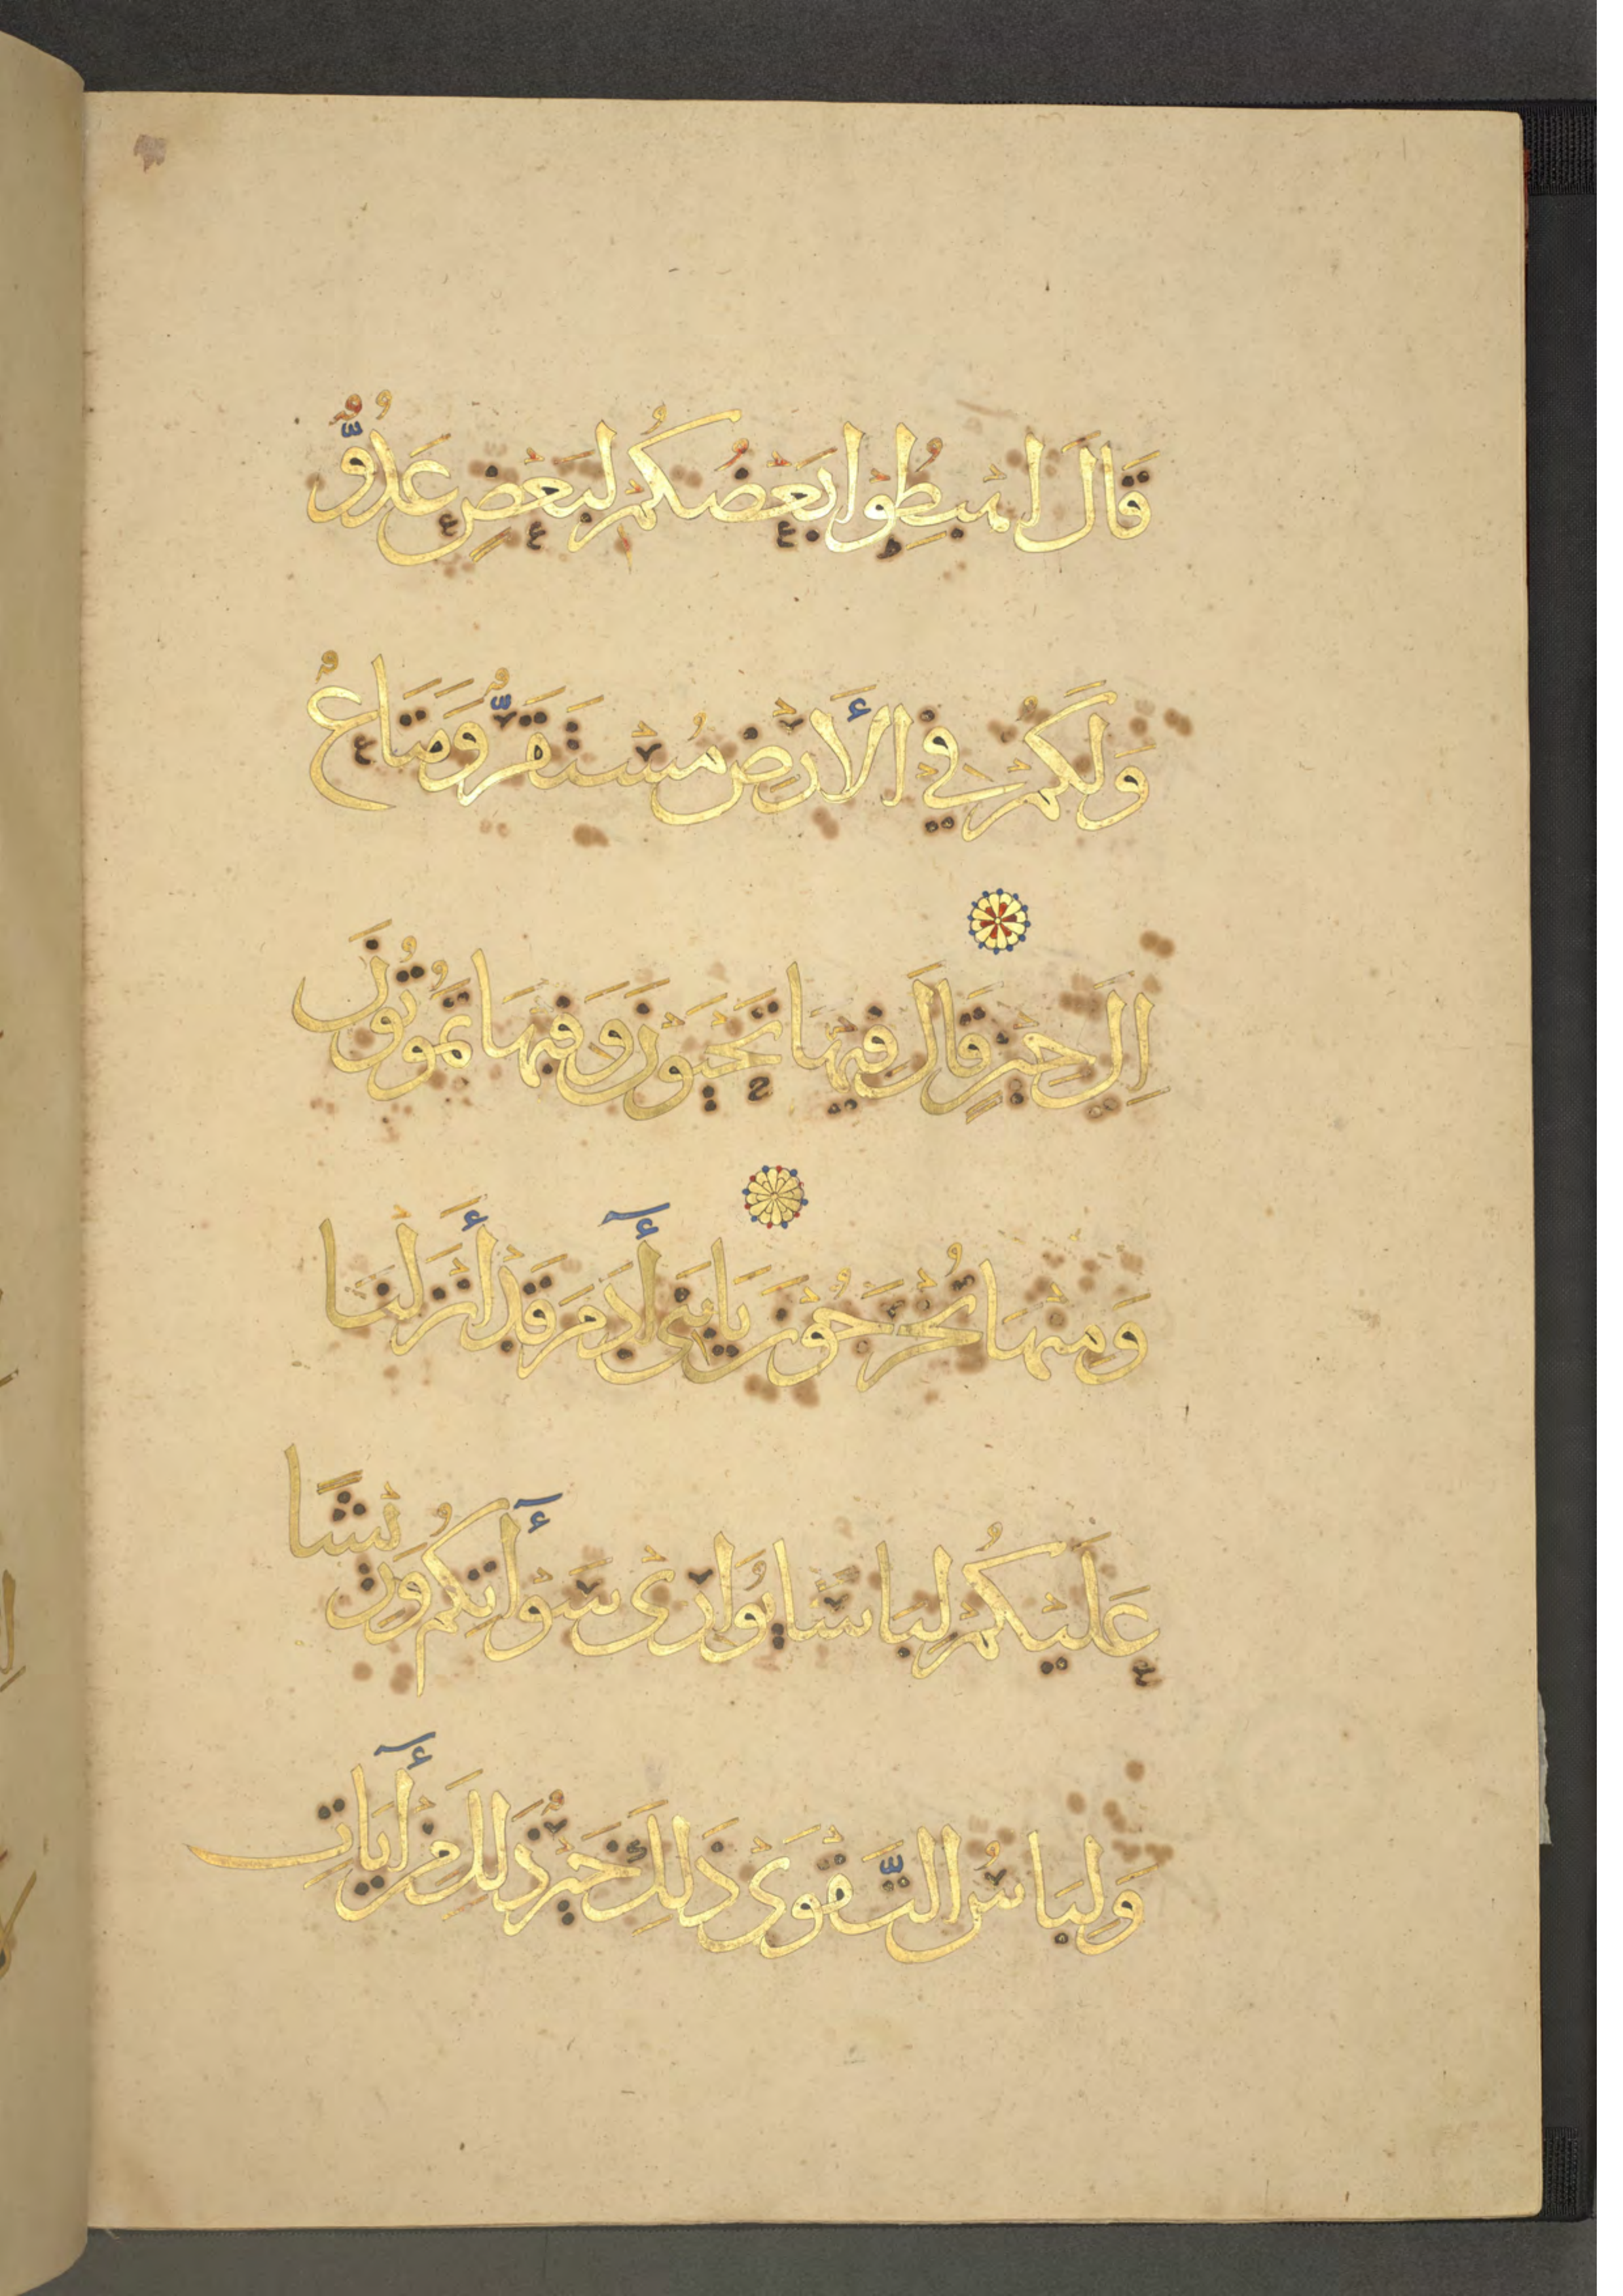 قَالَ اهْبِطُوْا بَعْضُكُمْ لِبَعْضٍ عَدُوٌّ
وَلَكُمْ فِي الْأَرْضِ مُسْتَقَرٌّ وَمَتَاعٌ
إِلَى حِيْنٍ قَالَ فِيْهَا تَحْيَوْنَ وَفِيْهَا تَمُوْتُوْنَ
وَمِنْهَا تُخْرَجُوْنَ يَا بَنِى أٓدَمَ قَدْ أَنْزَلْنَا
عَلَيْكُمْ لِبَاسًا يُوَارِىْ سَوْأٓتِكُمْ وَرِيْشًا
وَلِبَاسُ التَّقْوَىْ ذَلِكَ خَيْرٌ ذَلِكَ مِنْ أٓيَاتِ